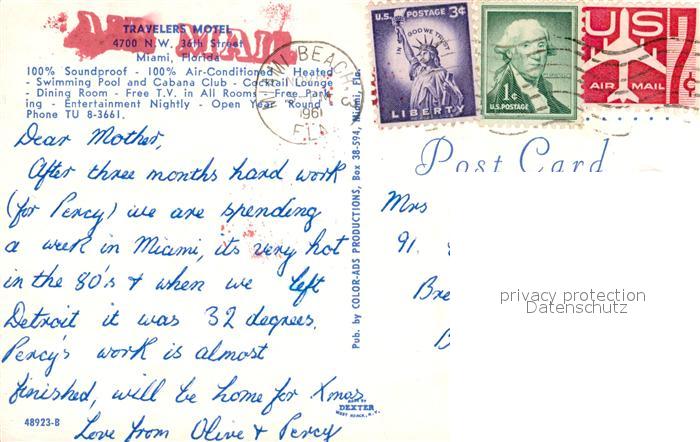 AIR MAIL
TRAVELERS MOTEL
4700 N.W. 36th Street
Miami, Florida
100% Soundproof - 100% Air-Conditioned - Heated
- Swimming Pool and Cabana Club - Cocktail Lounge
- Dining Room - Free T.V. in All Rooms - Free Park-
ing - Entertainment Nightly - Open Year 'Round
Phone TU 8-3661.
MIAMI BEACH
1961
FLA
U.S. POSTAGE 3¢
IN GOD WE TRUST
LIBERTY
1¢
U.S. POSTAGE
US
AIR MAIL
7¢
Dear Mother,
After three months hard work
(for Percy) we are spending
a week in Miami, its very hot
in the 80's & when we left
Detroit it was 32 degrees.
Percy's work is almost
finished, will be home for Xmas
Love from Olive & Percy
48923-B
DEXTER
WEST NYACK, N.Y.
Pub. by COLOR-ADS PRODUCTIONS, Box 38-594, Miami, Fla.
Post Card
Mrs
91.
Bre
privacy protection
Datenschutz